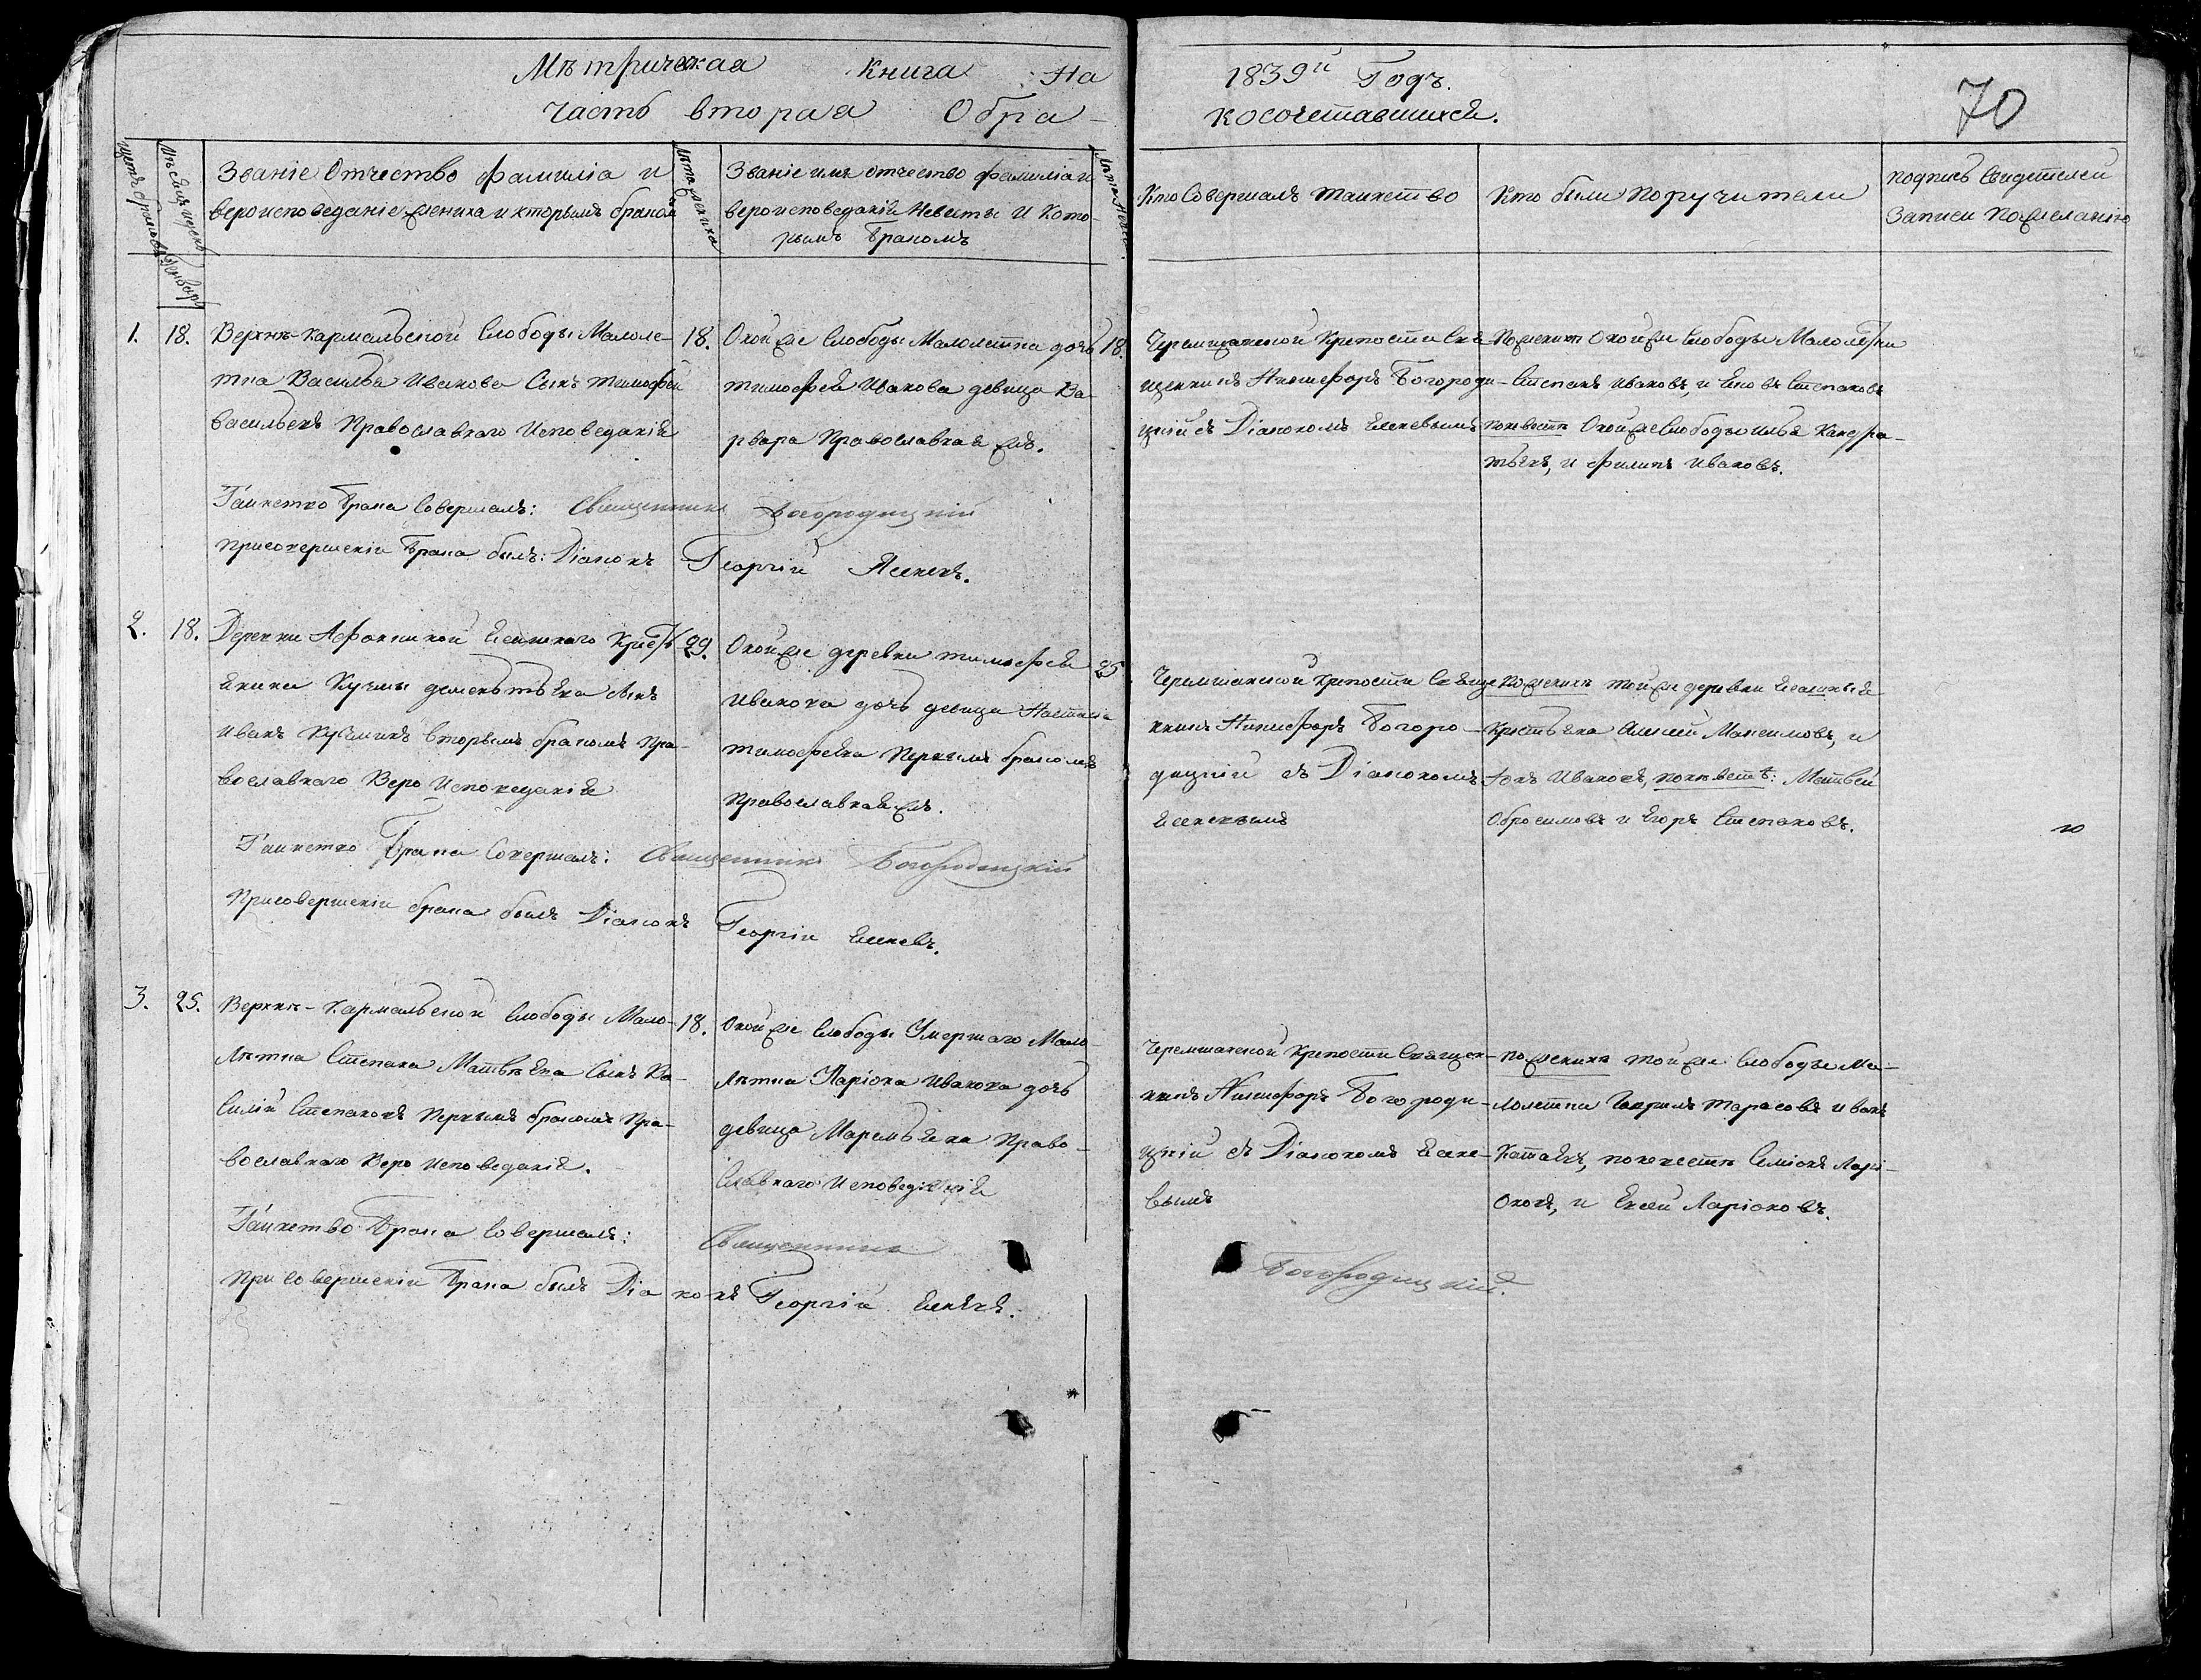 Мѣтрическая Книга На
часть вторая Обра-
1839й Годъ.
косочетавшихся.
70
щетъ браковъ
Мѣсяцъ и день
Генварь
Званіе Отчество фамиліа и
вероисповеданіе жениха и кторымъ бракомъ
Лѣта жениха
Званіе имя отчество фамиліа и
вероисповеданіи Невѣсты И Кото-
рымъ Бракомъ
Кто Совершалъ таинство
Кто были Поручители
подпись свидѣтелей
Записи по желанію
1.
18.
Верхнѣ-Кармальской Слободы Малоле-
тна Василья Иванова Сынъ Тимофей
Васильевъ Православнаго Исповеданія
18.
Оной же Слободы Малолетна дочь
Тимофея Иванова девица Ва-
рвара Православная жъ.
18.
Черемшанской Крепости Свя-
щенникъ Никифоръ Богороди-
цкій съ Діакономъ Ееневымъ
По женихѣ Оной же Слободы Малолетки
Степанъ Ивановъ, и Степановъ
по невѣстѣ Оной же Слободы Илья Канфра-
тьевъ, и Филипъ Ивановъ.
Таинство Брака Совершалъ: Священникъ Богородицкій
При совершеніи Брака былъ: Діаконъ Георгій
2.
18.
Деревни Афонкиной Ясашнаго Кресть
янина Кузмы дементьева сынъ
Иванъ Кузминъ вторымъ бракомъ Пра-
вославнаго Веро Исповеданія
29.
Оной же деревни Тимофея
Иванова дочь девица Настасія
Тимофеева Первымъ бракомъ
Православная жъ.
25
Черемшанской Крепости Свяще
нникъ Никифоръ Богоро-
дицкій съ Діакономъ
По женихѣ той же деревни Ясашныя
Крестьяна Алексей Максимовъ, и
Ивановъ, по невѣстѣ: Матвей
Обросимовъ и Егоръ Степановъ.
Таинство Брака Совершалъ: Священникъ Богородицкій
При совершеніи брака былъ Діаконъ Георгій
3.
25.
Верхнѣ-Кармальской Слободы Мало-
лѣтна Степана Матвѣева Сынъ Ва-
силій Степановъ Первымъ бракомъ Пра-
вославнаго Веро Исповеданія.
18.
Оной же Слободы Умершаго Мало-
лѣтна Ларіона Иванова дочь
девица Маремьяна Право-
славнаго Исповеданія
Черемшанской Крепости Священ-
никъ Никифоръ Богороди-
цкій съ Діакономъ Еене-
вымъ
По женихѣ той же Слободы Ма-
лолетна Гаврилъ Тарасовъ Иванъ
по невестѣ Семіонъ Ларі-
оновъ, и Ларіоновъ.
Таинство Брака Совершалъ: Священникъ Богородицкій.
При совершеніи Брака былъ Діаконъ Георгій